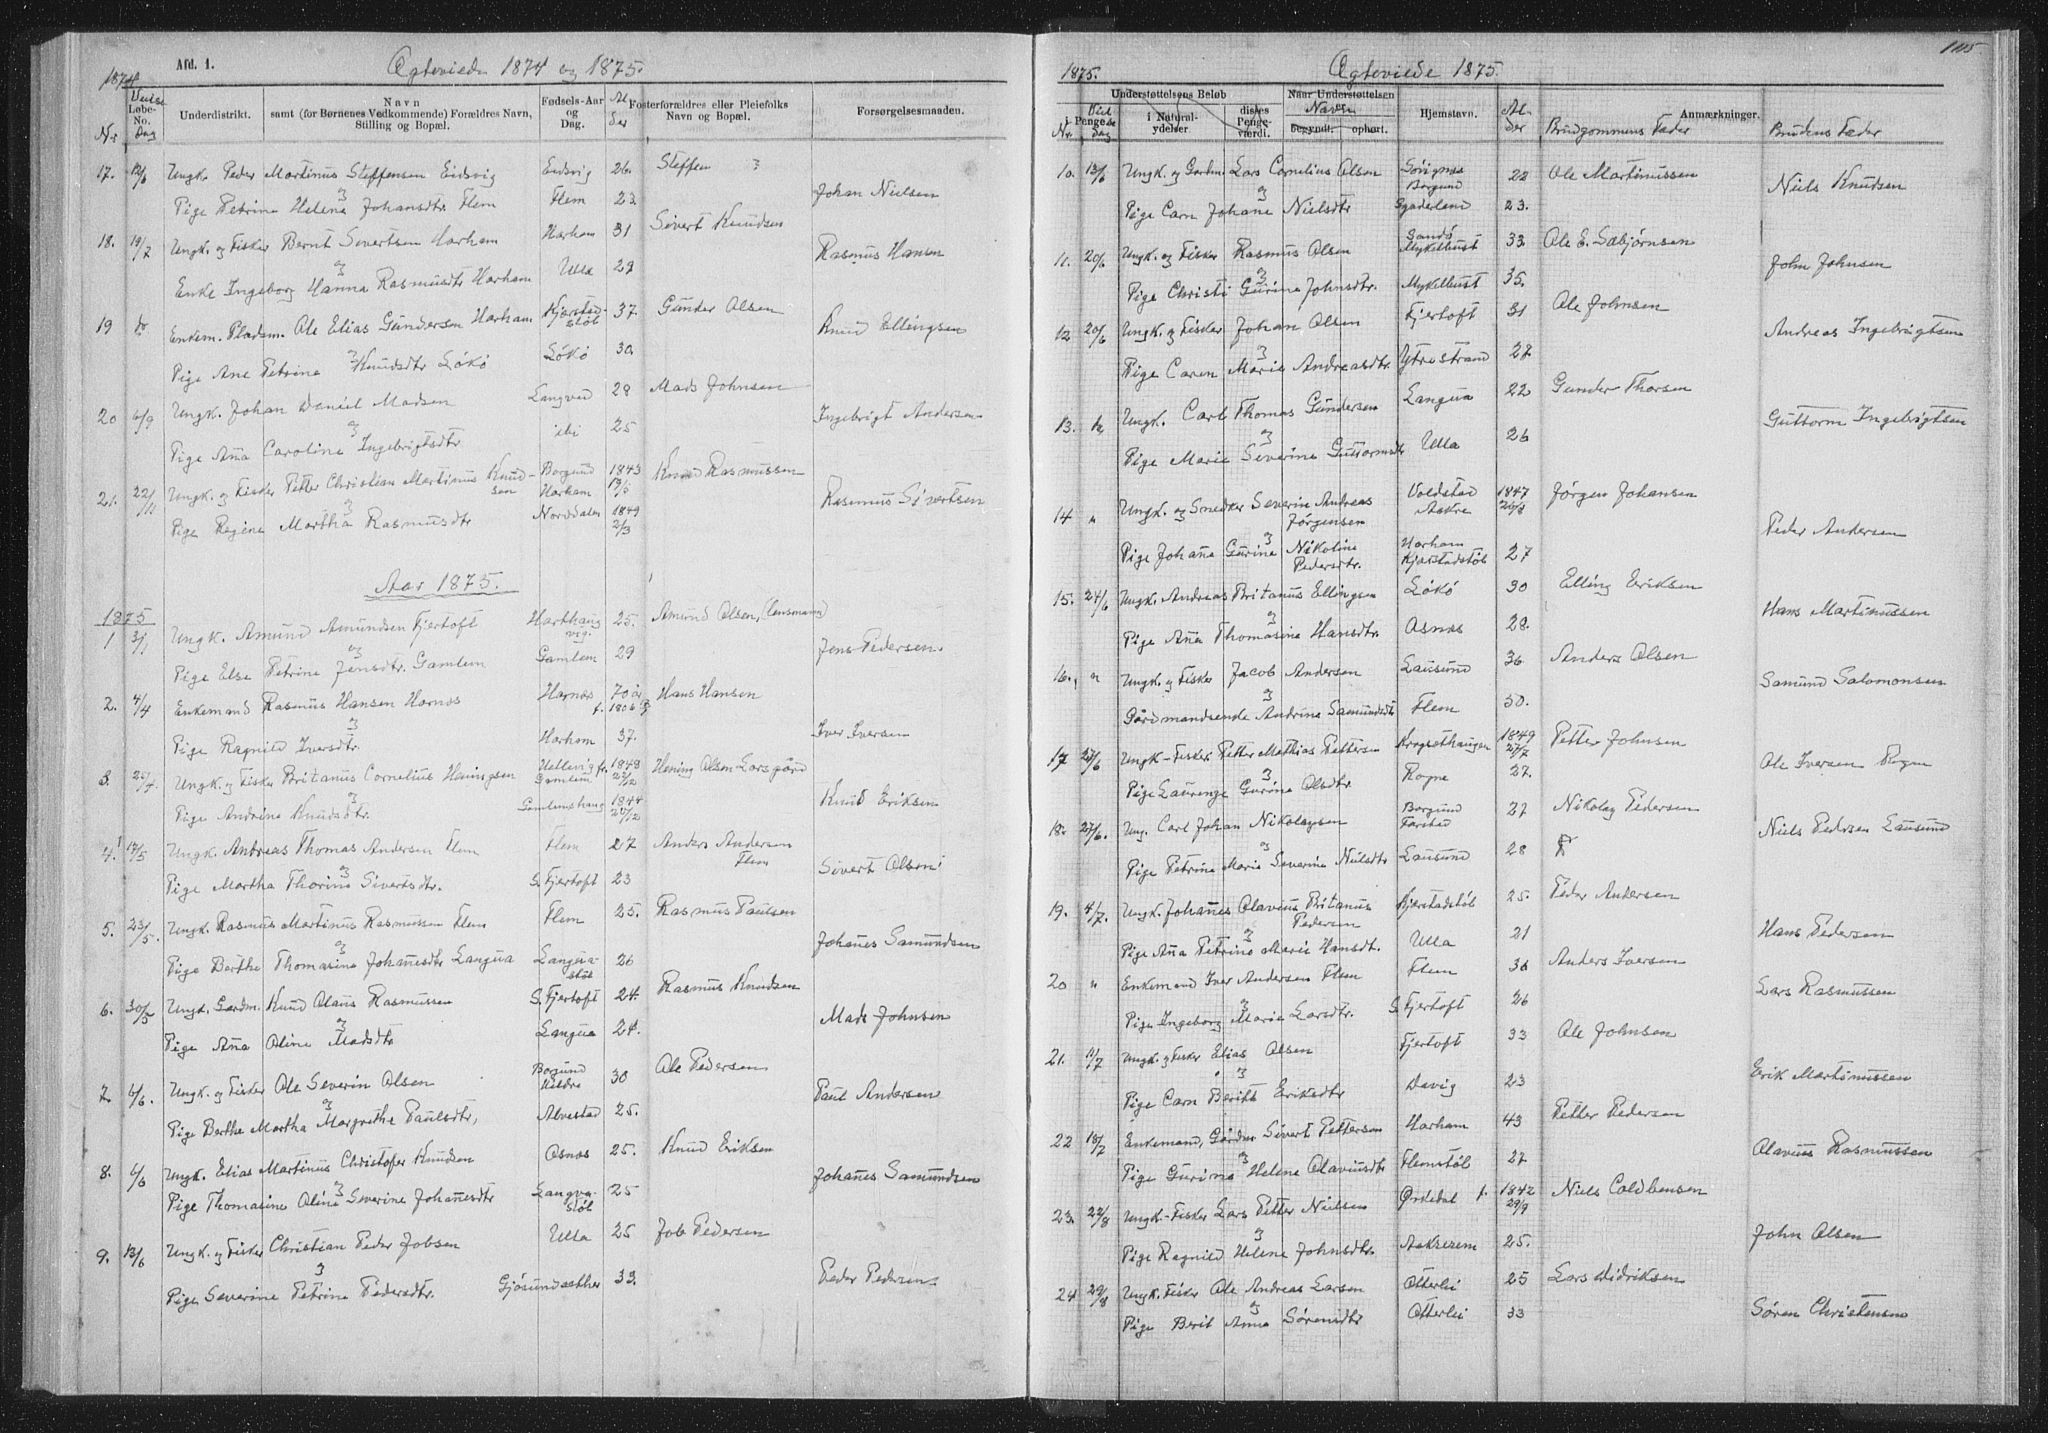 Afd. 1.
Ægteviede 1874 og 1875.
1874
Nr
Vielse
Løbe-
No.
Dag
Underdistrikt.
Navn
samt (for Børnenes Vedkommende) Forældres Navn,
Stilling og Bopæl.
Fødsels-Aar
og
Dag.
Al
der
Fosterforældres eller Pleiefolks
Navn og Bopæl.
Forsørgelsesmaaden.
17. 12/6 Ungk. Peder Martinus Steffensen Eidsvig Eidsvig 26. Steffen ?
og
Pige Petrine Helene Johansdtr Flem Flem 23. Johan Nielsen
18. 19/7 Ungk. og Fisker Bernt Sivertsen Harham Harham 31 Sivert Knudsen
og
Enke Ingeborg Hanna Rasmusdtr Harham Ulla 29 Rasmus Hansen
19 do Enkem. Pladsm. Ole Elias Gundersen Harham Kjerstad-
støl 37. Gunder Olsen
og
Pige Ane Petrine Knudsdtr Løkø Løkø 30. Knud Ellingsen
20 6/9 Ungk. Johan Daniel Madsen Langved 28 Mads Johnsen
og
Pige Ana Caroline Ingebrigtsdtr 25 Ingebrigt Andersen
21. 22/11 Ungk. og Fisker Petter Christian Martinus Knud-
sen Borgund
Harham 1843 Knud Rasmussen
og
Pige Regine Martha Rasmusdtr Norddalen 1849
2/3 Rasmus Sivertsen
Aar 1875.
1875
1 3/1 Ungk. Amund Amundsen Fjertoft Harthaug
vig. 25. Amund Olsen, (Lensmand)
og
Pige Else Petrine Jensdtr. Gamlem Gamlem 29 Jens Pedersen.
2. 4/4 Enkemand Rasmus Hansen Harnæs Harnæs 70 år
f. 1806 Hans Hansen
og
Pige Ragnild Iversdtr. Harham 37. Iver Iversen
3. 25/4. Ungk. og Fisker Britanus Cornelius Heningsen Hellevig fr.
Gamlem 1848
27/12 Hening Olsen Larsgård
og
Pige Andrine Knudsdtr. Gamlemshaug 1844
20/12 Knud Eriksen
4. 17/5 Ungk. Andreas Thomas Andersen Flem Flem 27 Anders Andersen
Flem
og
Pige Martha Thorine Sivertsdtr. S. Fjertoft 23 Sivert Olsen
5. 23/5. Ungk. Rasmus Martinus Rasmussen Flem Flem 25. Rasmus Paulsen
og
Pige Berthe Thomasine Johanesdtr Langva Langva-
støl 26 Johanes Samundsen
6. 30/5 Ungk. Gardm. Knud Olaus Rasmussen S. Fjertoft 24. Rasmus Knudsen
og
Pige Ana Oline Madsdtr Langva 24. Mads Johnsen
7. 6/6. Ungk. og Fisker Ole Severin Olsen Borgund
Kildre 30 Ole Pedersen
og
Pige Berthe Martha Margrethe Paulsdtr, Alvestad 25. Paul Andersen
8. 6/6 Ungk. Elias Martinus Christofer Knudsen Osnæs 25. Knud Eriksen
og
Pige Thomasine Oline Severine Johanesdtr Langva-
støl 25 Johanes Samundsen
9. 13/6 Ungk. og Fisker Christian Peder Jobsen Ulla 25 Job Pedersen
og
Pige Severine Petrine Pedersdtr. Gjøsundsæther 33. Peder Pedersen
1875.
Ægteviede 1875.
Nr.
Viel
se
dag
i Penge.
Understøttelsens Beløb
i Natural-
ydelser.
disses
Penge-
værdi.
Naar Understøttelsen
Navn
begyndt. ophørt.
Hjemstavn.
Al-
der
Anmærkninger.
Brudgommens Fader
Brudens Fader
10. 13/6 Ungk. og Gardm. Lars Cornelius Olsen Sørignæs
Borgund 22 Ole Martinussen
og
Pige Carn Johane Nielsdtr Gjaderland 23. Niels Knudsen
11. 20/6 Ungk. og Fisker Rasmus Olsen Sandø
Mykelbust 33. Ole E. Sæbjørnsen
og
Pige Christi Gurine Johnsdtr. Mykelbust 35. John Johnsen
12. 20/6 Ungk. og Fisker Johan Olsen Fjertoft 31 Ole Johnsen
og
Pige Caren Marie Andreasdtr. Ytrestrand 27 Andreas Ingebrigtsen
13. Ungk. Carl Thomas Gundersen Langva 22 Gunder Thorsen
og
Pige Marie Severine Guttormsdtr Ulla 26 Guttorm Ingebrigtsen
14 " Ungk. og Snedker Severin Andreas
Jørgensen Voldstad
Aakre 1847
20/8 Jørgen Johansen
og
Pige Johane Gurine Nikoline
Pedersdtr. Harham
Kjærstadstøl 27 Peder Andersen
15. 24/6 Ungk. Andreas Britanus Ellingsen Løkø 30 Elling Eriksen
og
Pige Ana Thomasine Hansdtr. Osnæs 28. Hans Martinussen
16. " Ungk. og Fisker Jacob Andersen Lausund 36. Anders Olsen
og
Gårdmandsenke Andrine Samundsdtr Flem 50. Samund Salomonsen
17 27/6 Ungk-Fisker Petter Mathias Pettersen Krogsethaugen 1849
27/7 Petter Johnsen
og
Pige Laurenze Gurine Olsdtr. Rogne 27. Ole Iversen Rogne
18. 27/6. Ung. Carl Johan Nikolaysen Borgund
Farstad 27 Nikolay Pedersen
og
Pige Petrine Marie Severine Nielsdtr Lausund 28 Niels Pedersen Lausund
19. 4/7. Ungk. Johanes Olavius Britanus
Pedersen Kjerstadstøl 25. Peder Andersen
og
Pige Ana Petrine Marie Hansdt. Ulla 21 Hans Pedersen
20 " Enkemand Iver Andersen Flem Flem 36 Anders Iversen
og
Pige Ingeborg Marie Larsdtr. S. Fjertoft 26 Lars Rasmussen
21. 11/7 Ungk. og Fisker Elias Olsen Fjertoft 33 Ole Johnsen
og
Pige Carn Berith Eriksdtr Davig 23 Erik Martinussen
22 18/7 Enkemand, Gårdm Sivert Pettersen Harham 43 Petter Pedersen
og
Pige Gurine Helene Olaviusdtr Flemstøl 27. Olavius Rasmussen
23. 22/8 Ungk-Fisker Lars Petter Nielsen Ørkedal f. 1842
29/9 Niels Coldbensen
og
Pige Ragnild Helene Johnsdtr. Aakrerem 25. John Olsen
24 29/8 Ungk. Fisker Ole Andreas Larsen Otterlei 25 Lars Didriksen
og
Pige Berit Anna Sørensdtr Otterlei 33 Søren Christensen